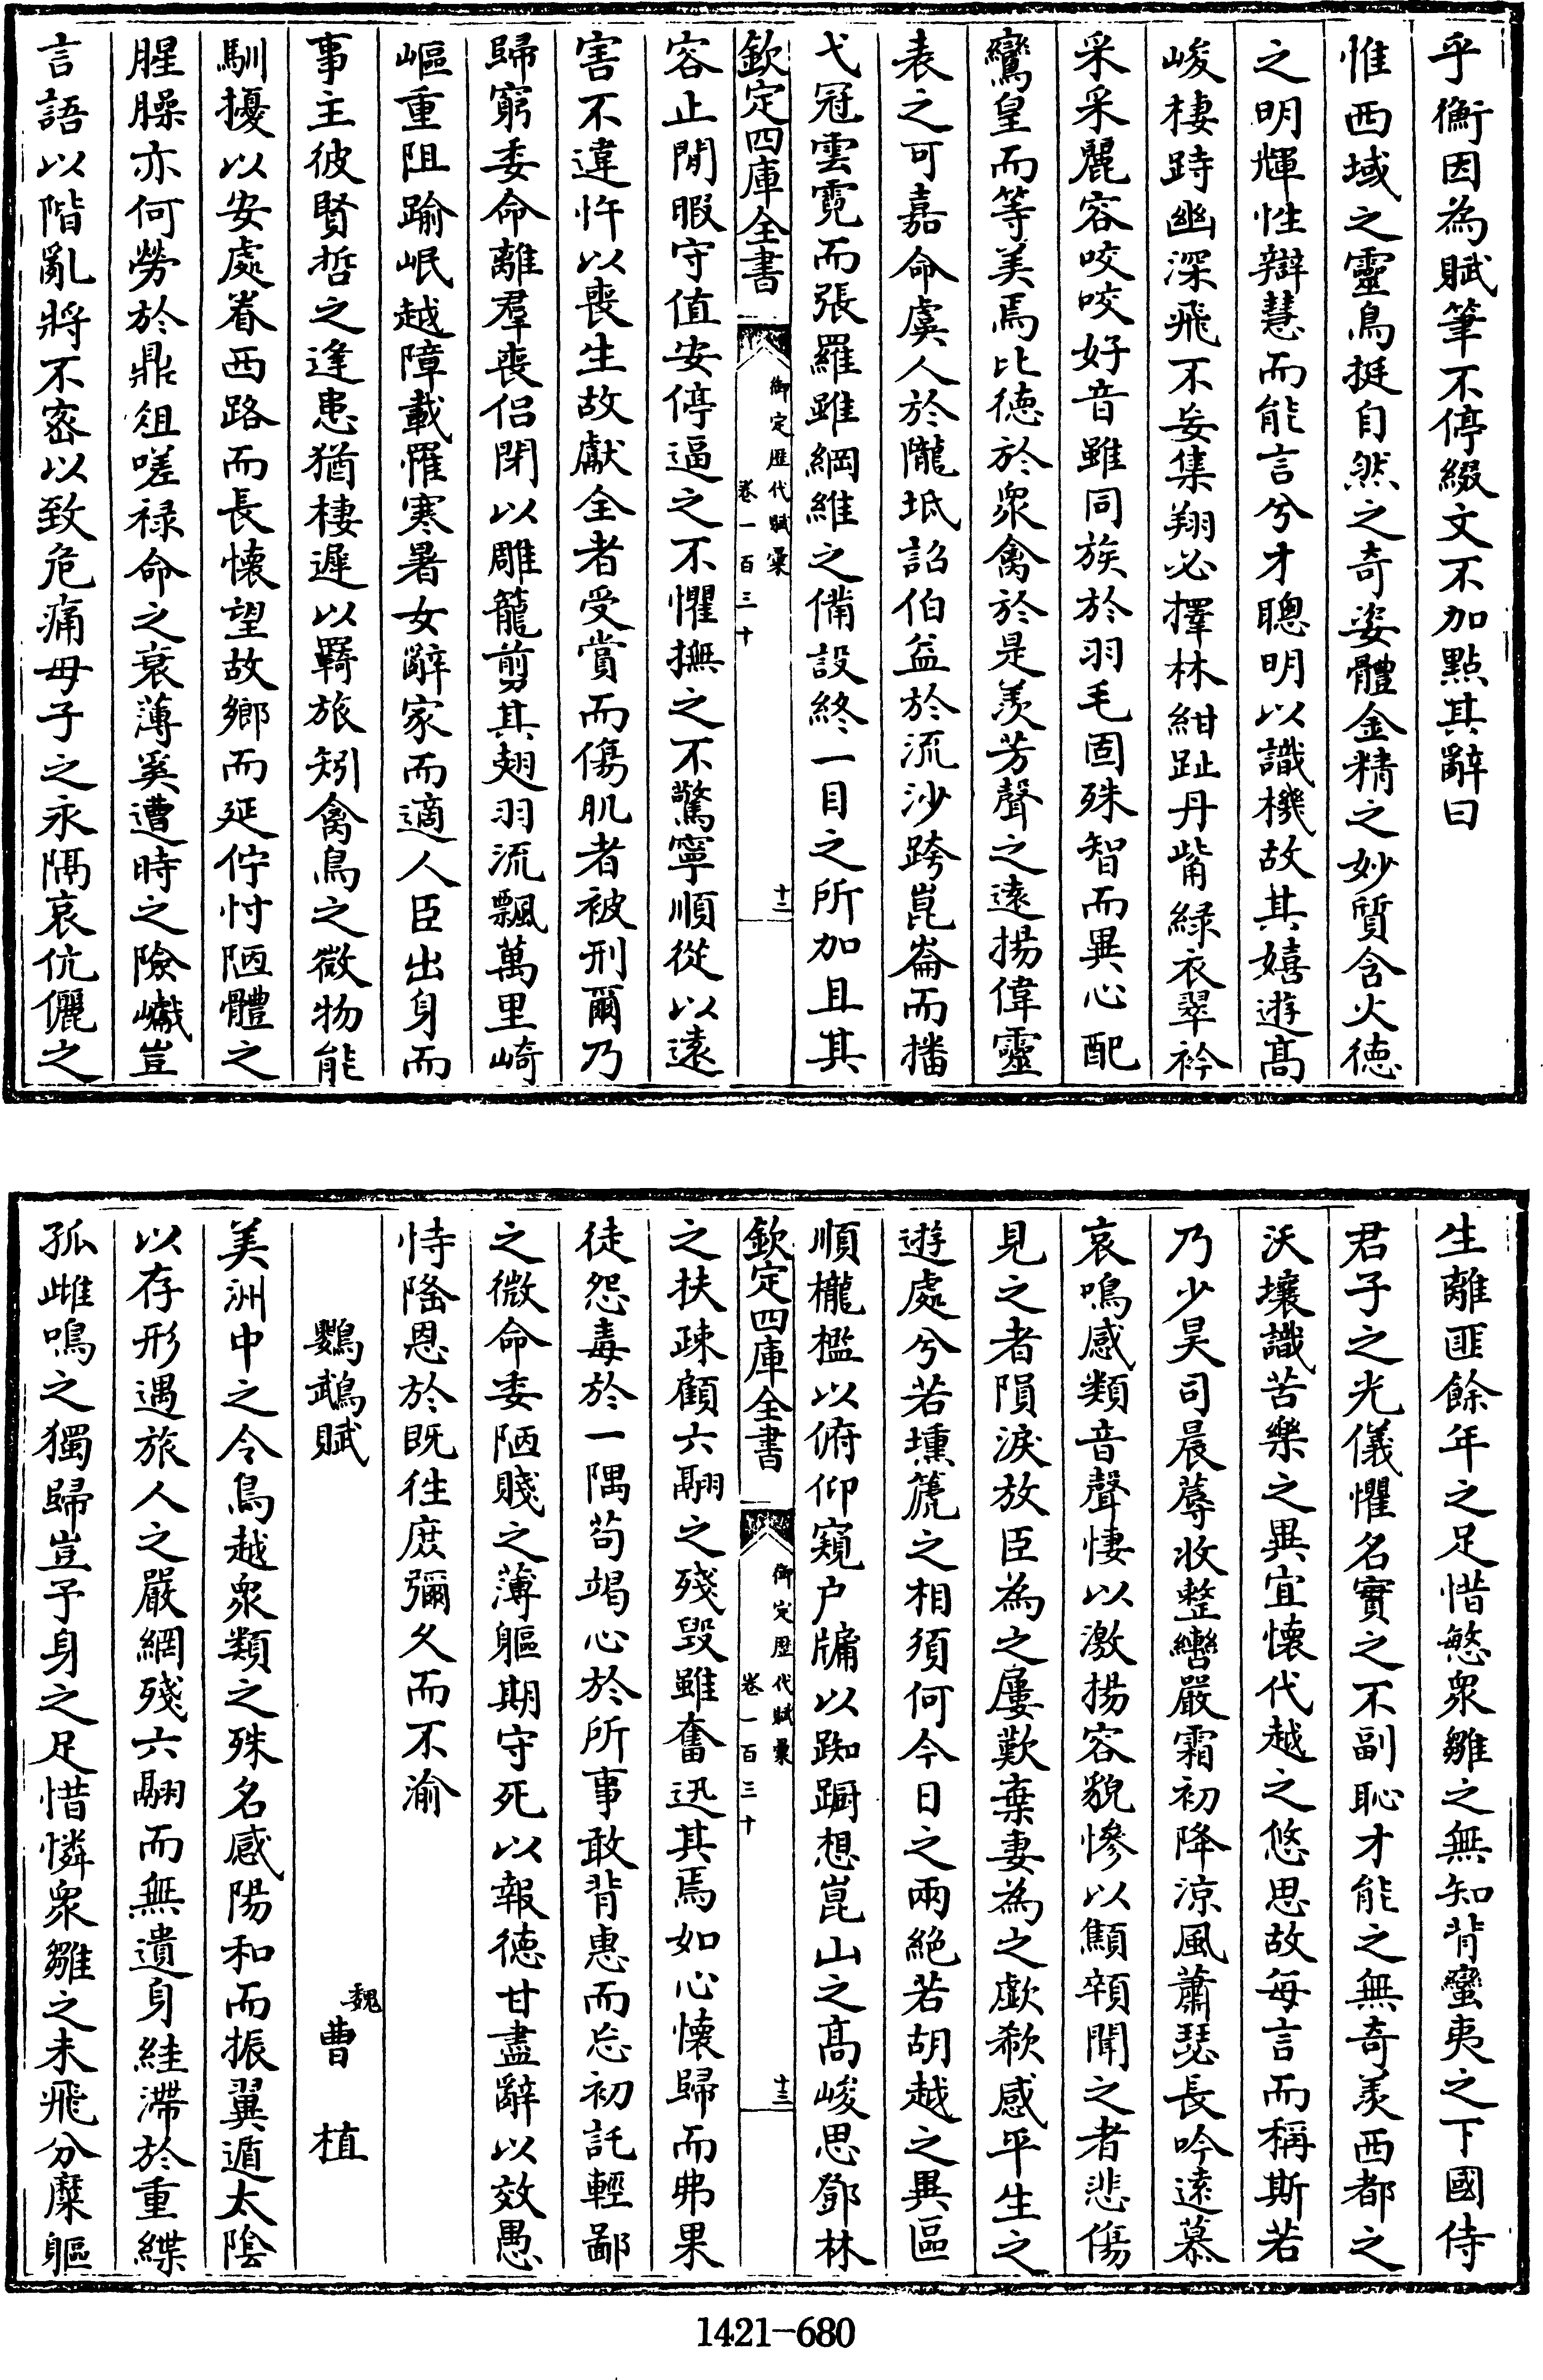 乎衡因為賦筆不停綴文不加點其辭曰
惟西域之靈鳥挺自然之奇姿體金精之妙質含火德
之明輝性辯慧而能言兮才聰明以識機故其嬉遊高
峻棲跱幽深飛不妄集翔必擇林紺趾丹觜緑衣翠衿
采采麗容咬咬好音雖同族於羽毛固殊智而異心配
鸞皇而等美焉比德於衆禽於是羨芳聲之遠揚偉靈
表之可嘉命虞人於隴坻詔伯益於流沙跨崑崙而播
弋冠雲霓而張羅雖綱維之備設終一目之所加且其
欽定四庫全書
御定歷代賦彙
卷一百三十
十二
容止閒暇守值安停逼之不懼撫之不驚寧順從以遠
害不違忤以喪生故獻全者受賞而傷肌者被刑爾乃
歸窮委命離羣喪侣閉以雕籠剪其翅羽流飄萬里崎
嶇重阻踰岷越障載罹寒暑女辭家而適人臣出身而
事主彼賢哲之逢患猶棲遲以羇旅矧禽鳥之微物能
馴擾以安處眷西路而長懷望故鄉而延佇忖陋體之
腥臊亦何勞於鼎俎嗟禄命之衰薄奚遭時之險巇豈
言語以階亂將不密以致危痛母子之永隔哀伉儷之
生離匪餘年之足惜慜衆雛之無知背蠻夷之下國侍
君子之光儀懼名實之不副恥才能之無奇羨西都之
沃壤識苦樂之異宜懷代越之悠思故每言而稱斯若
乃少昊司晨蓐收整轡嚴霜初降涼風蕭瑟長吟遠慕
哀鳴感類音聲悽以激揚容貌慘以顦顇聞之者悲傷
見之者隕淚放臣為之屢歎棄妻為之歔欷感平生之
遊處兮若壎箎之相須何今日之兩絶若胡越之異區
順櫳檻以俯仰窺户牖以踟蹰想崑山之高峻思鄧林
欽定四庫全書
御定歷代賦彙
卷一百三十
十三
之扶疎顧六翮之殘毀雖奮迅其焉如心懷歸而弗果
徒怨毒於一隅苟竭心於所事敢背惠而忘初託輕鄙
之微命委陋賤之薄軀期守死以報德甘盡辭以效愚
恃隆恩於既徃庶彌久而不渝
鸚鵡賦
魏曹植
美洲中之令鳥越衆類之殊名感陽和而振翼遁太陰
以存形遇旅人之嚴網殘六翮而無遺身絓滯於重緤
孤雌鳴之獨歸豈予身之足惜憐衆雛之未飛分糜軀
1421-680